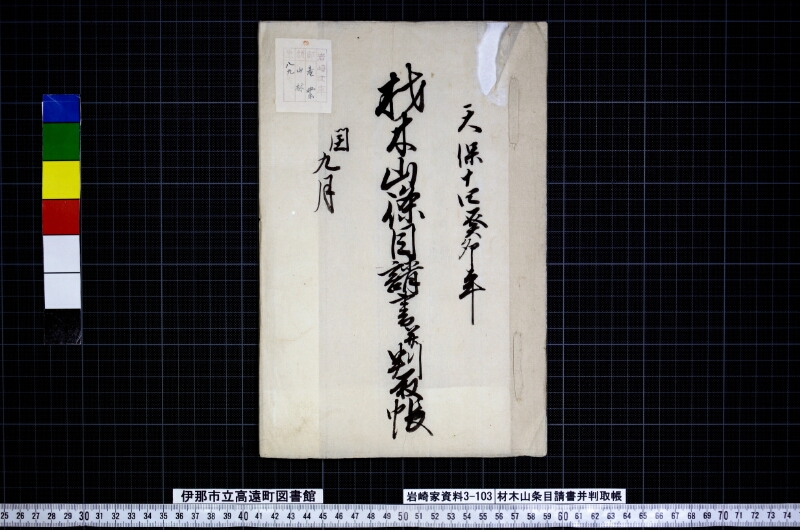 天保十四癸卯年
材木山條目請書并判取帳
閏九月
産業
山林
八九
伊那市立高遠町図書館
岩崎家資料3-103
材木山条目請書并判取帳
25 26 27 28 29 30 31 32 33 34 35 36 37 38 39 40 41 42 43 44 45 46 47 48 49 50 51 52 53 54 55 56 57 58 59 60 61 62 63 64 65 66 67 68 69 70 71 72 73 74